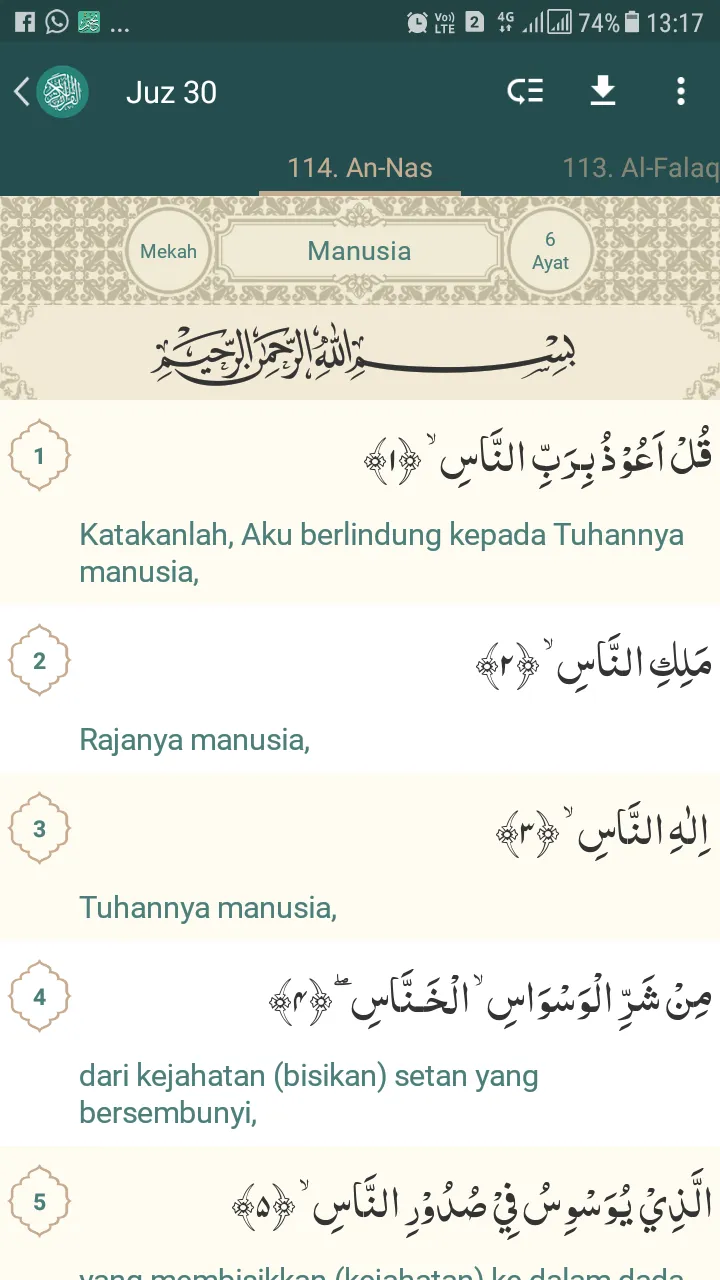 ... Vo)) LTE 2 4G 74% 13:17
Juz 30
114. An-Nas 113. Al-Falaq
Mekah
Manusia
6
Ayat
بِسْمِ اللهِ الرَّحْمٰنِ الرَّحِيْمِ
1
قُلْ اَعُوْذُ بِرَبِّ النَّاسِۙ ﴿١﴾
Katakanlah, Aku berlindung kepada Tuhannya
manusia,
2
مَلِكِ النَّاسِۙ ﴿٢﴾
Rajanya manusia,
3
اِلٰهِ النَّاسِۙ ﴿٣﴾
Tuhannya manusia,
4
مِنْ شَرِّ الْوَسْوَاسِ ۙ الْخَنَّاسِۖ ﴿۴﴾
dari kejahatan (bisikan) setan yang
bersembunyi,
5
الَّذِيْ يُوَسْوِسُ فِيْ صُدُوْرِ النَّاسِۙ ﴿۵﴾
yang membisikkan (kejahatan) ke dalam dada